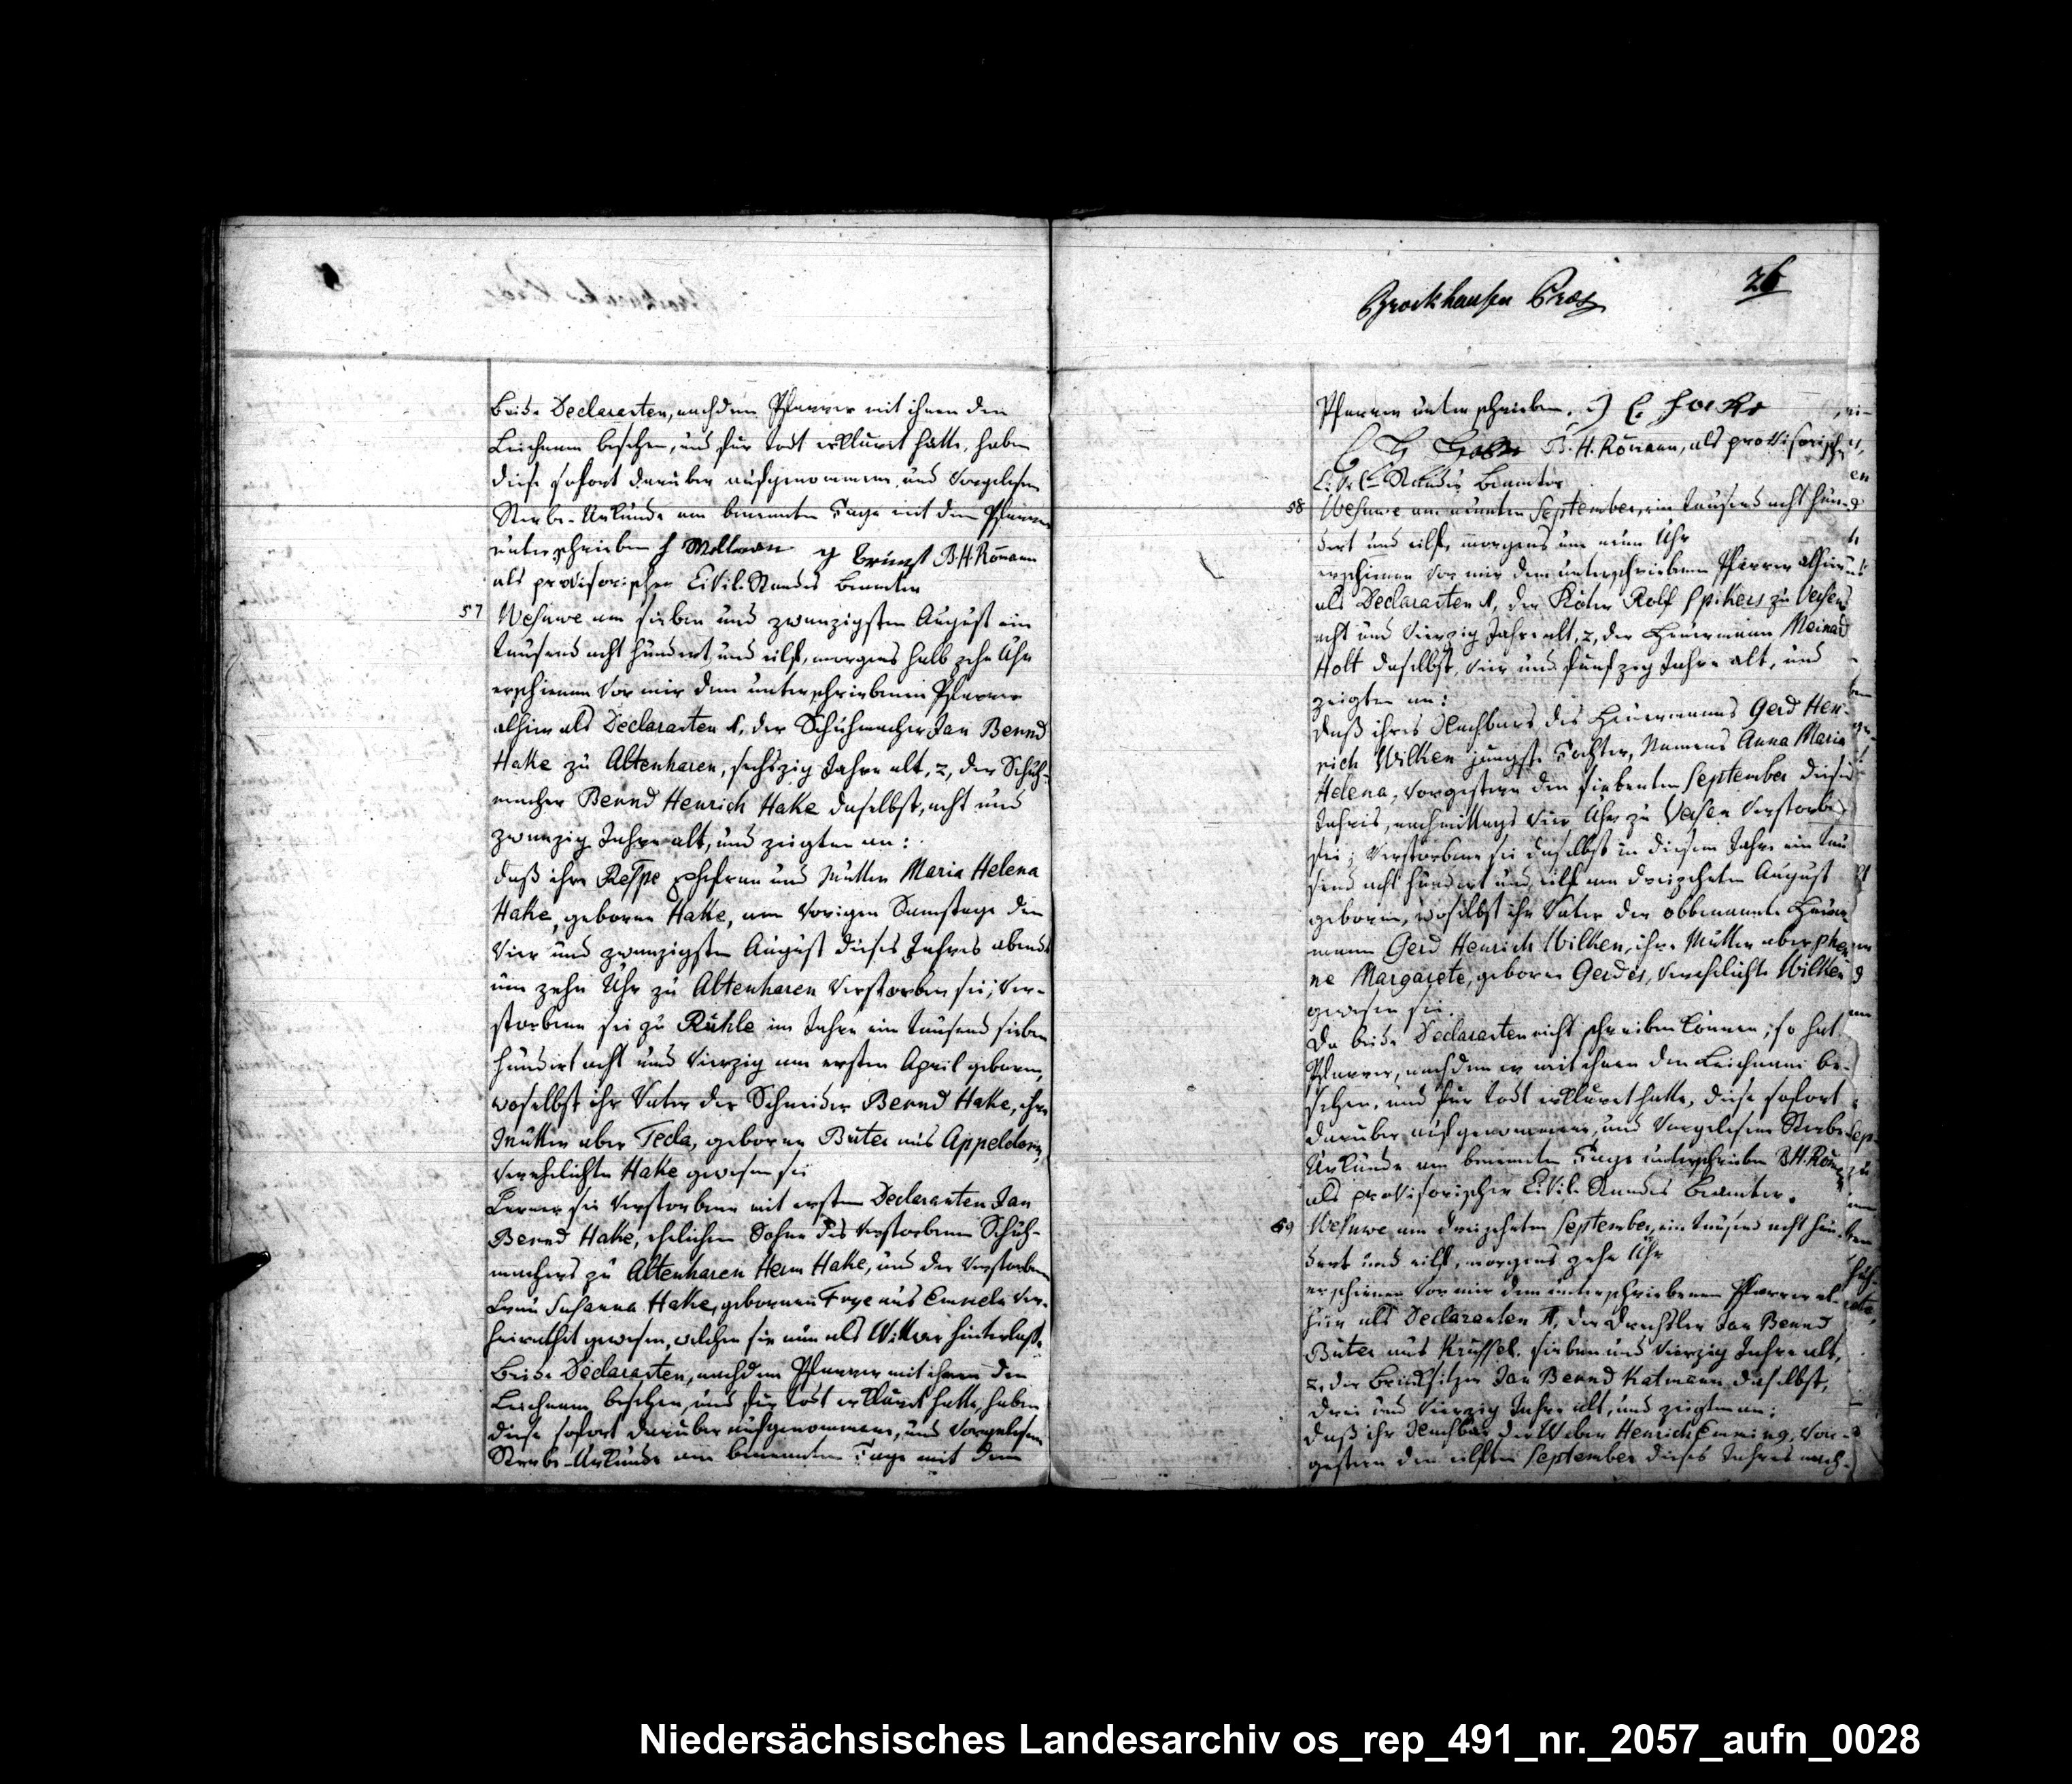 beide Declaranten, nachdem Pfarrer mit ihnen den
Leichnam besehen, und für todt erkläret hatte, haben
diese sofort darüber aufgenommene, und vorgelesene
Sterbe-Urkunde am benannten Tage mit dem Pfarrer
unterschrieben B. H. Römann
als provisorischer Civil-Standes Beamter
57 Wesuwe am sieben und zwanzigsten August ein
tausend acht hundert und eilf, morgens halb zehn Uhr
erschienen vor mir dem unterschriebenen Pfarrer
alhier als Declaranten 1, der Schuhmacher Jan Bernd
Hake zu Altenharen, sechszig Jahre alt, 2, der Schuh-
macher Bernd Henrich Hake daselbst, acht und
zwanzig Jahre alt, und zeigten an:
daß ihre Respe Ehefrau und Mutter Maria Helena
Hake, geborne Hake, am vorigen Samstage den
vier und zwanzigsten August dieses Jahres abends
um zehn Uhr zu Altenharen verstorben sei; Ver-
storbene sei zu Rühle im Jahre ein tausend sieben
hundert acht und vierzig am ersten April geboren,
woselbst ihr Vater der Schneider Bernd Hake, ihre
Mutter aber Tecla, geborne Büter aus Appeldorn,
verehelichte Hake gewesen sei
Ferner sei Verstorbene mit ersten Declaranten Jan
Bernd Hake, ehelichen Sohne des verstorbenen Schuh-
machers zu Altenharen Herm Hake, und der verstorbenen
Frau Susanna Hake, gebornen Frye aus Emmeln ver-
heirathet gewesen, welchen sie nun als Witwer hinterlasse.
Beide Declaranten, nachdem Pfarrer mit ihnen den
Leichnam besehen, und für todt erkläret hatte, haben
diese sofort darüber aufgenommene, und vorgelesene
Sterbe-Urkunde am benannten Tage mit dem
Brockhausen Præs
26
Pfarrer unterschrieben.
B. H. Römann, als provisorischer
Civil-Standes Beamter
58 Wesuwe am neunten September, ein tausend acht hun-
dert und eilf, morgens um neun Uhr
erschienen vor mir dem unterschriebenen Pfarrer alhier
als Declaranten 1, der Köter Rolf Spikers zu Versen
acht und vierzig Jahre alt, 2, der Heuermann Meinad
Holt daselbst, vier und fünfzig Jahre alt, und
zeigten an:
daß ihres Nachbars des Heuermanns Gerd Hen-
rich Wilken jüngste Tochter, Namens Anna Maria
Helena, vorgestern den siebenten September dieses
Jahres, nachmittags vier Uhr zu Versen verstorben
sei; Verstorbene sei daselbst in diesem Jahre ein tau
send acht hundert und eilf am dreizehnten August
geboren, woselbst ihr Vater der obbenannte Heuer
mann Gerd Henrich Wilken, ihre Mutter aber Phen
ne Margarete, geborne Gerdes, verehelichte Wilken
gewesen sei.
Da beide Declaranten nicht schreiben können; so hat
Pfarrer, nachdem er mit ihnen den Leichnam be-
sehen, und für todt erkläret hatte, diese sofort
darüber aufgenommene, und vorgelesene Sterbe-
Urkunde am benannten Tage unterschrieben B. H. Römann
als provisorischer Civil-Standes Beamter.
59 Wesuwe am dreizehnten September, ein tausend acht hun-
dert und eilf, morgens zehn Uhr
erschienen vor mir dem unterschriebenen Pfarrer al-
hier als Declaranten 1, der Drechsler Jan Bernd
Büter aus Krüssel, sieben und vierzig Jahre alt,
2, der Brinksitzer Jan Bernd Katmann daselbst,
drei und vierzig Jahre alt, und zeigten an:
daß ihr Nachbar der Weber Henrich Enning, vor-
gestern den eilften September dieses Jahres nach-
Niedersächsisches Landesarchiv os_rep_491_nr._2057_aufn_0028